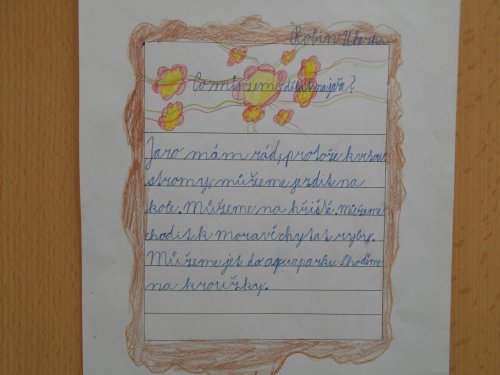 Robin
Co můžeme dělat na jaře?
Jaro mám rád, protože kvetou
stromy, můžeme jezdit na
kole. Můžeme na hřiště. Můžeme
chodit k Moravě chytat ryby.
Můžeme jet do aquaparku. Chodíme
na kroužky.